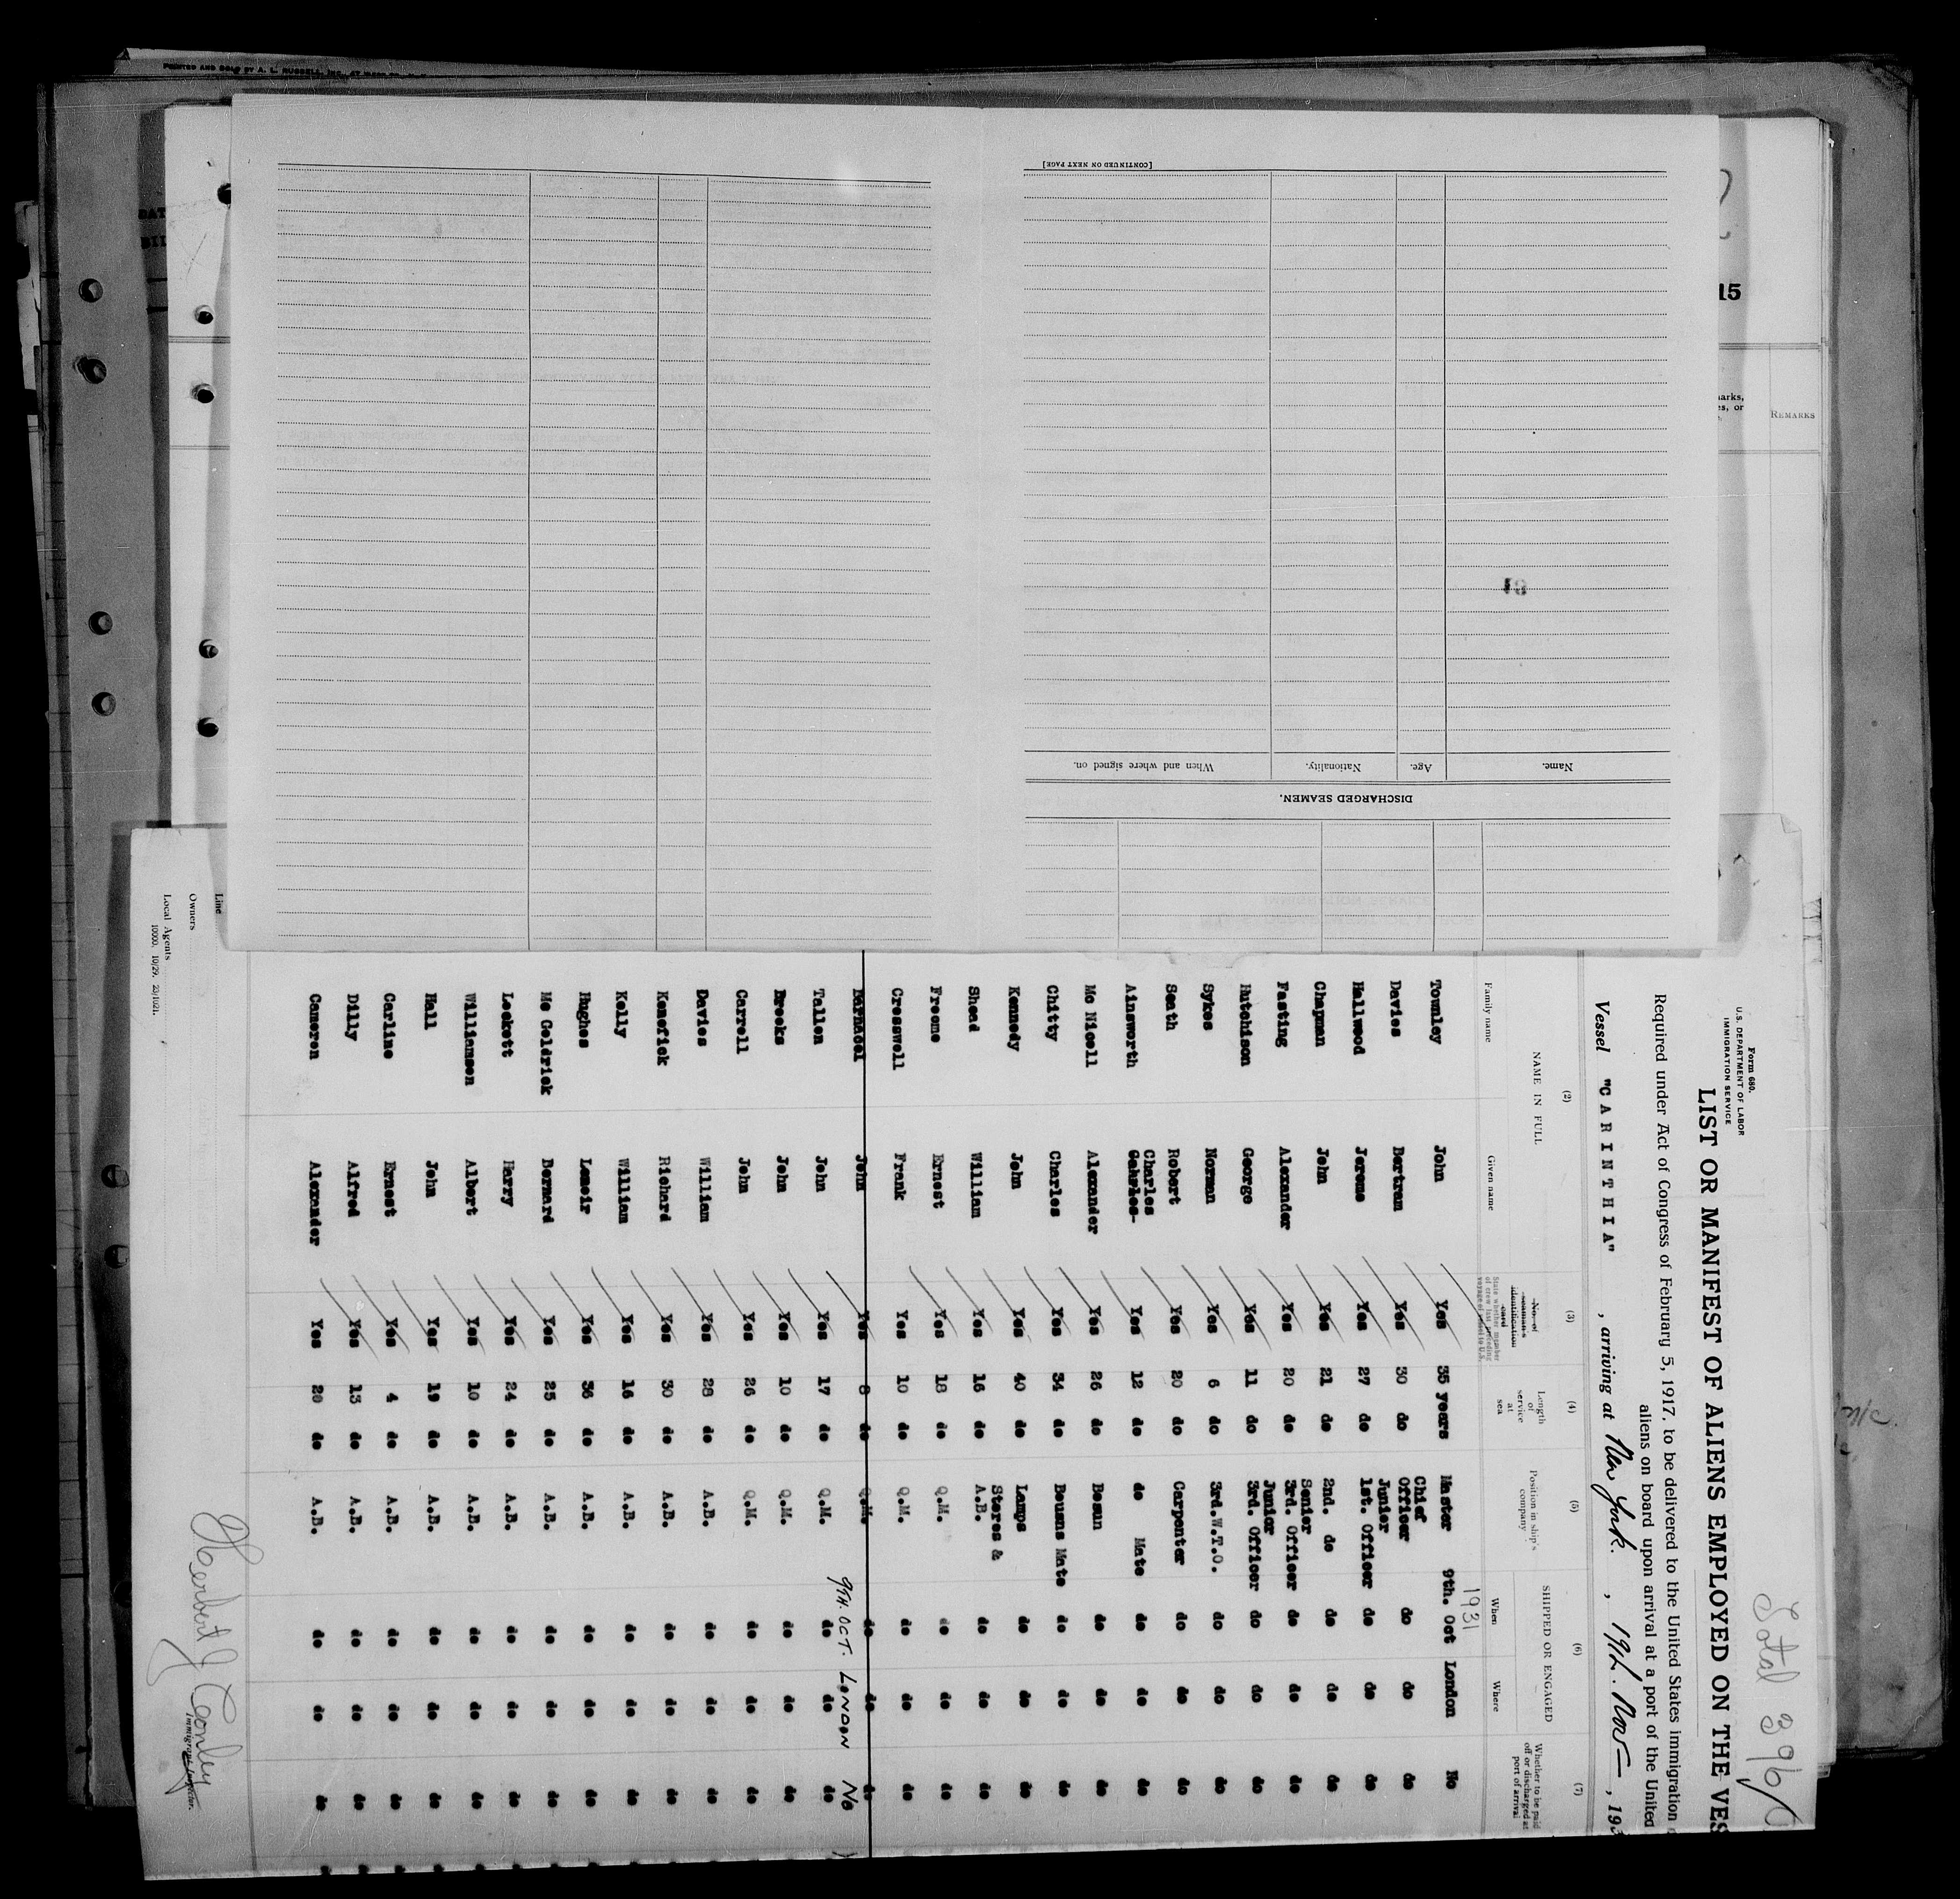 PRINTED AND SOLD BY A. L. RUSSELL, INC.
[CONTINUED ON NEXT PAGE]
15
REMARKS
Name. Age. Nationality. When and where signed on.
DISCHARGED SEAMEN.
Line
Owners
Local Agents
10000. 10/29.
Total 396
Form 680.
U.S. DEPARTMENT OF LABOR
IMMIGRATION SERVICE
LIST OR MANIFEST OF ALIENS EMPLOYED ON THE VES
Required under Act of Congress of February 5, 1917, to be delivered to the United States immigration
aliens on board upon arrival at a port of the United
Vessel "CARINTHIA" , arriving at New York. , 19th. Nov , 193
(2) (3) (4) (5) (6) (7)
NAME IN FULL
Family name Given name
No. of seaman's identification card
State whether member of crew last preceding voyage of vessel to U.S.
Length of service at sea
Position in ship's company
SHIPPED OR ENGAGED
When Where
Whether to be paid off or discharged at port of arrival
1931
Townley John Yes 35 years Master 9th. Oct London No
Davies Bertram Yes 30 do Chief Officer do do do
Hallwood Jerome Yes 27 do Junior 1st. Officer do do do
Chapman John Yes 21 do 2nd. do do do do
Fasting Alexander Yes 20 do Senior 3rd. Officer do do do
Hutchison George Yes 11 do Junior 3rd. Officer do do do
Sykes Norman Yes 6 do 3rd.W.T.O. do do do
Seath Robert Yes 20 do Carpenter do do do
Ainsworth Charles Yes 12 do do Mate do do do
Mc Nicoll Alexander Yes 26 do Bosun do do do
Chitty Charles Yes 34 do Bosuns Mate do do do
Kennedy John Yes 40 do Lamps do do do
Shead William Yes 16 do Stores & A.B. do do do
Freeme Ernest Yes 18 do Q.M. do do do
Cresswell Frank Yes 10 do Q.M. do do do
Barnacel John Yes 8 do Q.M. do do do
9TH. OCT. LONDON No
Tallen John Yes 17 do Q.M. do do do
Brooks John Yes 10 do Q.M. do do do
Carrell John Yes 26 do Q.M. do do do
Davies William Yes 28 do A.B. do do do
Kenefick Richard Yes 30 do A.B. do do do
Kelly William Yes 16 do A.B. do do do
Hughes Lemoir Yes 36 do A.B. do do do
Mc Goldrick Bernard Yes 25 do A.B. do do do
Lockett Harry Yes 24 do A.B. do do do
Williamson Albert Yes 10 do A.B. do do do
Hall John Yes 19 do A.B. do do do
Carline Ernest Yes 4 do A.B. do do do
Dilly Alfred Yes 13 do A.B. do do do
Cameron Alexander Yes 20 do A.B. do do do
Herbert J Conley
Immigrant Inspector.